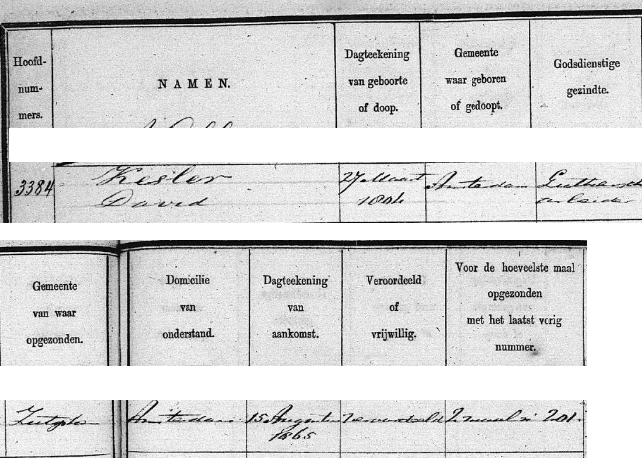 Hoofd-
num-
mers.
NAMEN.
Dagteekening
van geboorte
of doop.
Gemeente
waar geboren
of gedoopt.
Godsdienstige
gezindte.
3384
Kesler
David
27 Maart
1804
Amsterdam
Luthersch
Gemeente
van waar
opgezonden.
Domicilie
van
onderstand.
Dagteekening
van
aankomst.
Veroordeeld
of
vrijwillig.
Voor de hoeveelste maal
opgezonden
met het laatst vorig
nummer.
Zutphen
Amsterdam
15 Augustus
1865
Veroordeeld
2 maal n 201